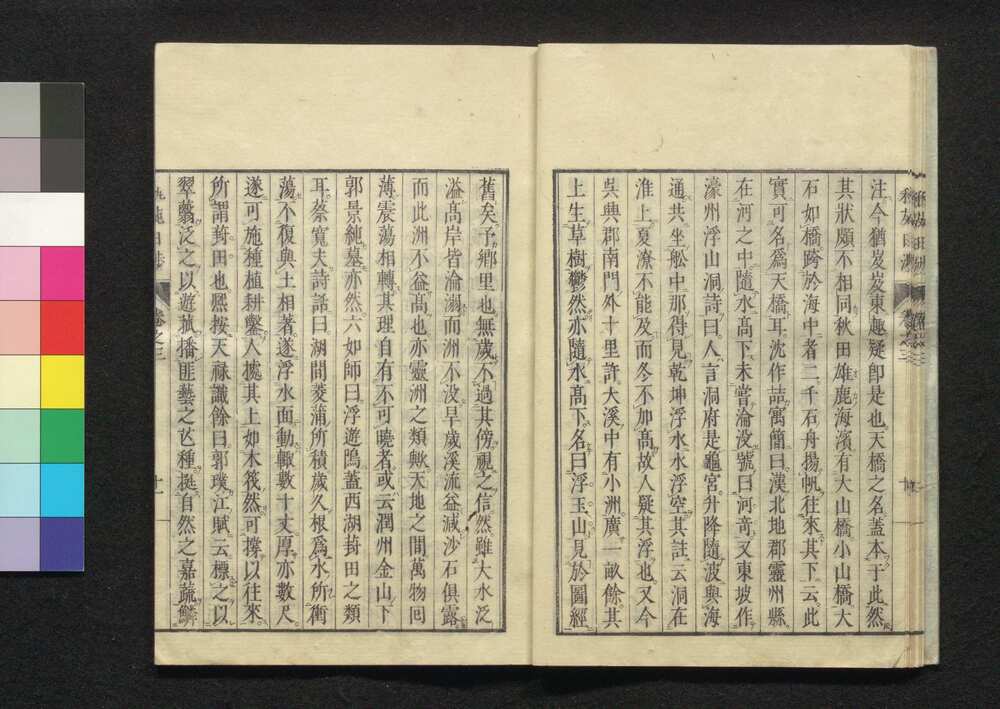 注今猶岌岌東趣疑卽是也天橋之名蓋本于此然
其狀頗不相同秋田雄鹿海濱有大山橋小山橋大
石如橋跨於海中者二千石舟揚帆往來其下云此
實可名爲天橋耳沈作喆寓簡曰漢北地郡靈州縣
在河之中隨水高下未嘗淪沒號曰河奇又東坡作
濠州浮山洞詩曰人言洞府是龜宮升降隨波與海
通共坐船中那得見乾坤浮水水浮空其註云洞在
淮上夏潦不能及而冬不加高故人疑其浮也又今
吳興郡南門外十里許大溪中有小洲廣一畝餘其
上生草樹鬱然亦隨水高下名曰浮玉山見於圖經
舊矣予鄉里也無歲不過其傍視之信然雖大水泛
溢高岸皆淪溺而洲不沒旱歲溪流益減沙石俱露
而此洲不益高也亦靈洲之類歟天地之間萬物回
薄震蕩相轉其理自有不可曉者或云潤州金山下
郭景純墓亦然六如師曰浮遊鳴蓋西湖葑田之類
耳蔡寬夫詩話曰湖間菱蒲所積歲久根爲水所衝
蕩不復與土相著遂浮水面動輒數十丈厚亦數尺
遂可施種植耕鑿人據其上如木筏然可撐以往來
所謂葑田也熙按天祿識餘曰郭璞江賦云標之以
翠蘙泛之以遊菰播匪藝之芒種挺自然之嘉蔬鱗
卷之三
十一